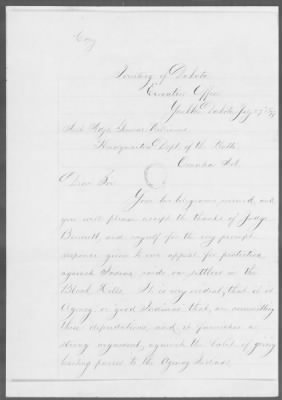 Copy
Territory of Dakota
Executive Office
Yankton Dakota July 27" 1877
Headquarters Dept. of the Platte
Omaha Neb.
Dear Sir
Your two telegrams received, and
you will please accept the thanks of Judge
Bennett, and myself for the very prompt
response given to our appeal for protection
against Indian raids on settlers in the
Black Hills. It is very evident, that it is
Agency or good Indians that, are committing
these depredations, and it furnishes a
strong argument, against the habit of giving
hunting passes to the Agency Indians